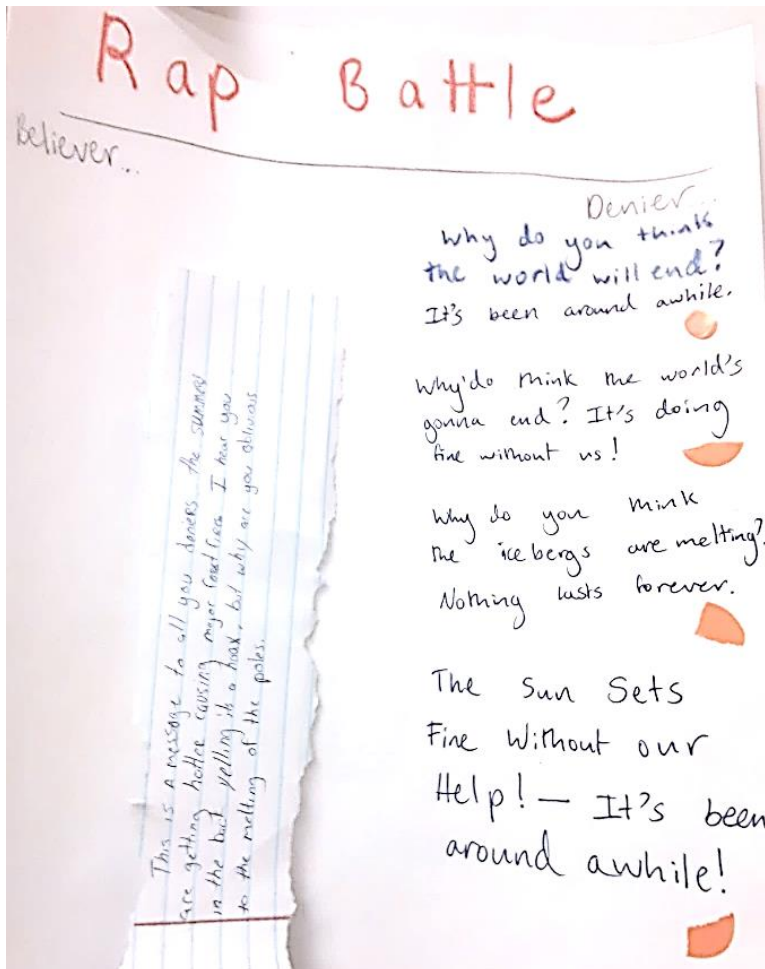 Rap Battle
Believer...
This is a message to all you deniers the summers
are getting hotter causing major forest fires I hear you
in the back yelling its a hoax, but why are you oblivois
to the melting of the poles.
Denier...
Why do you think
the world will end?
It's been around awhile.
Why do think the world's
gonna end? It's doing
fine without us!
Why do you think
the icebergs are melting?
Nothing lasts forever.
The Sun Sets
Fine Without our
Help! — It's been
around awhile!